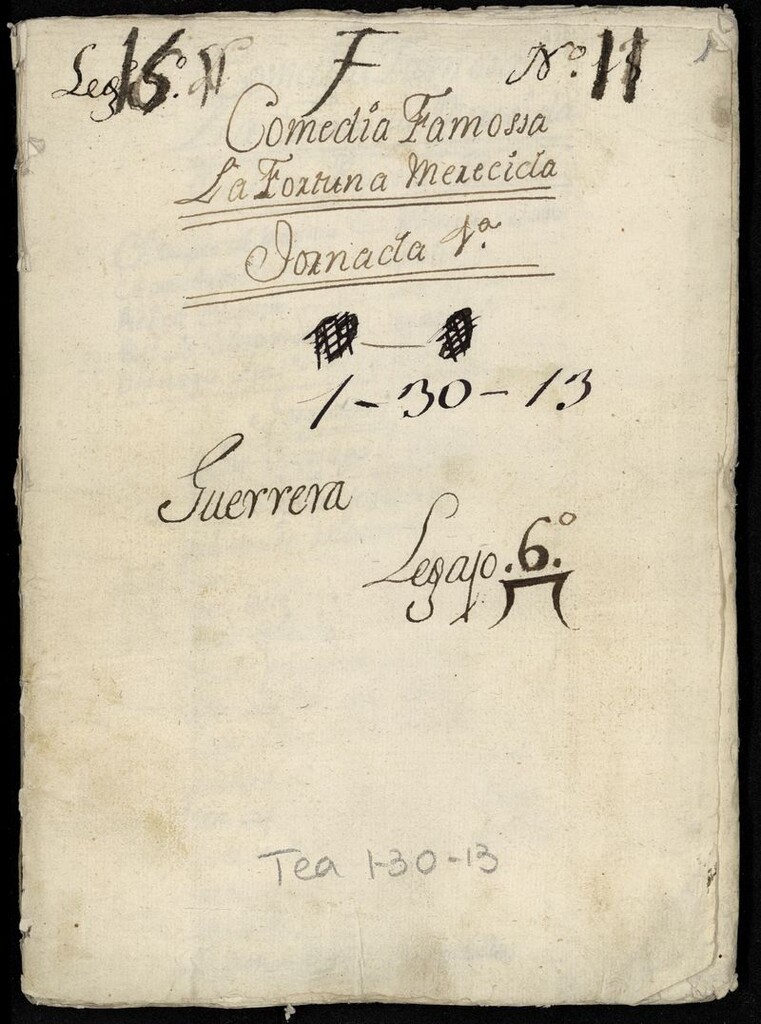 Leg.º 15 F Nº. 11
Comedia Famossa
La Fortuna Merecida
Jornada 1ª.
1-30-13
Guerrera
Legajo. 6.º
Tea 1-30-13